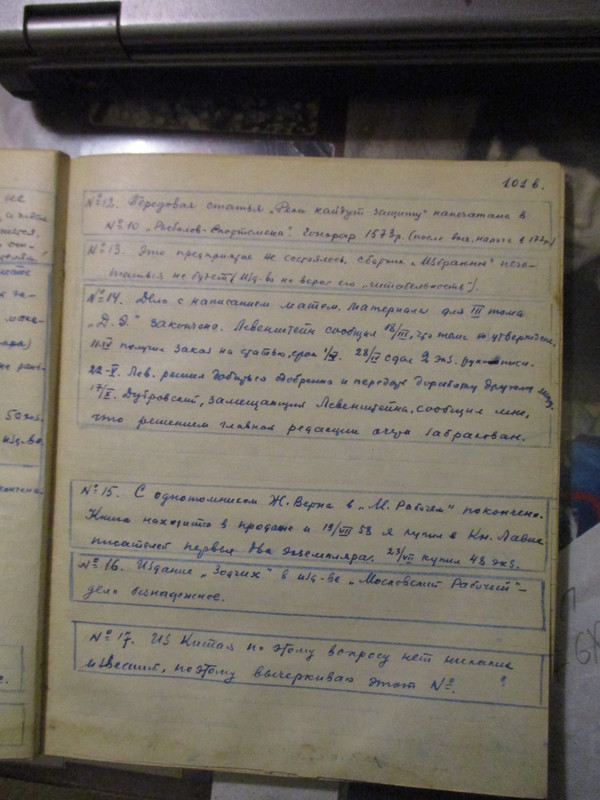 101 б.
№ 12. Передовая статья „Реки найдут защиту" напечатана в
№ 10 „Рыболов-Спортсмена". Гонорар 1573 р. (после выч. налога в 172 р)
№ 13. Это предприятие не состоялось, сборник „Избранный" печа-
таться не будет (Изд-во не верит его „читабельность").
№ 14. Дело с написанием матем. материала для III тома
„Д. Э." закончено. Левенштейн сообщил 18/III, что тема утверждена,
получил заказ на статью, срок 1/V. 28/IV сдал 2 экз. рукописи.
22-V. Лев. решил добиться одобрения и передать доработку другому
17/X. Дубровский, замещающий Левенштейна, сообщил мне,
что решением главной редакции очерк забракован.
№ 15. С однотомником Ж. Верна в „М. Рабочем" покончено.
Книга находится в продаже и 19/VII 58 я купил в Кн. Лавке
писателей первые два экземпляра. 23/VII купил 48 экз.
№ 16. Издание „Зодчих" в изд-ве „Московский Рабочий" –
дело безнадежное.
№ 17. Из Китая по этому вопросу нет никаких
известий, поэтому вычеркиваю этот №.
не
50 экз.
изд-во,